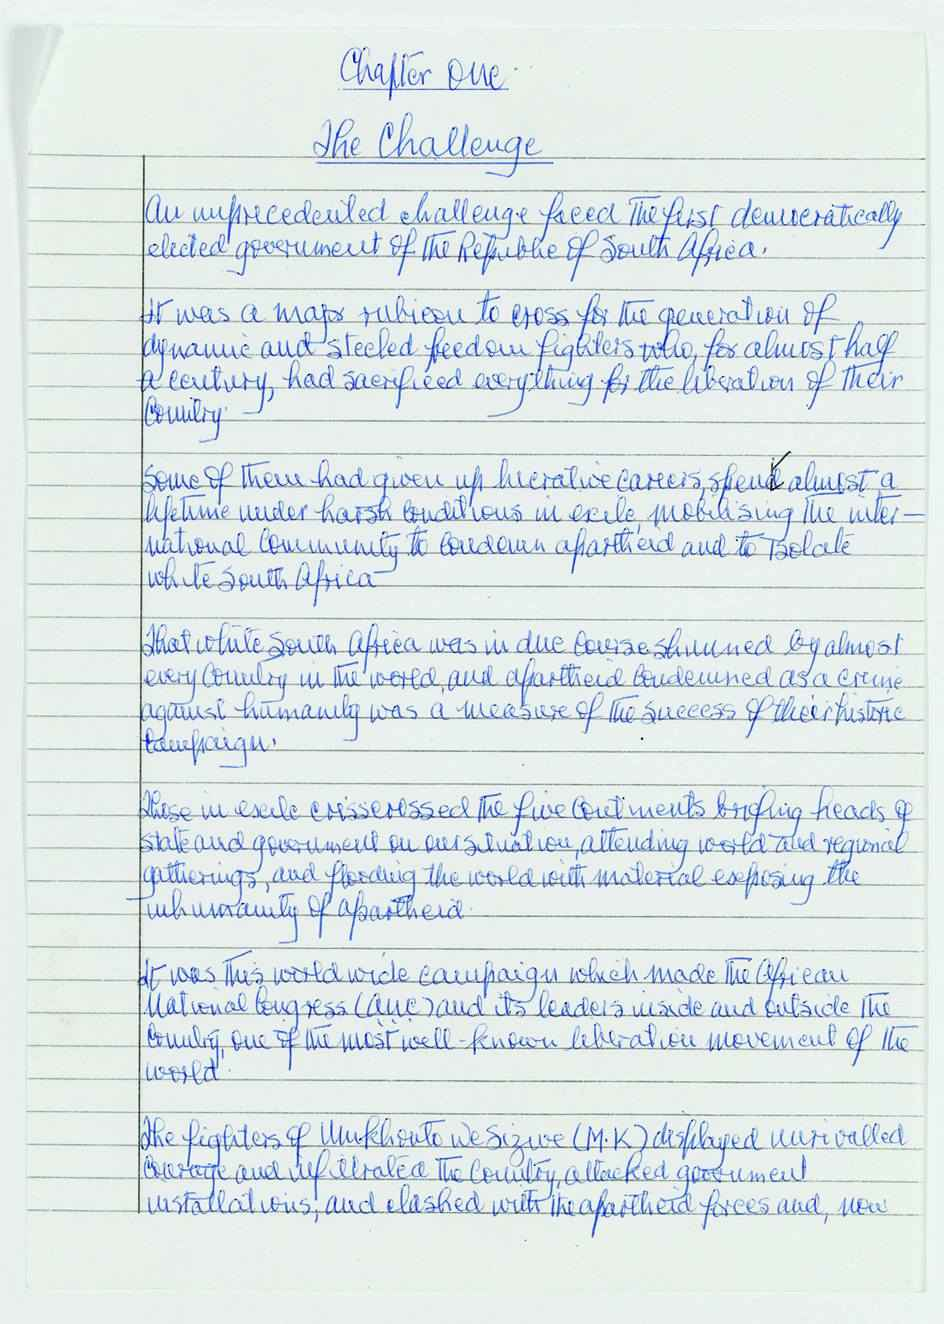 Chapter One
The Challenge
An unprecedented challenge faced the first democratically
elected government of the Republic of South Africa.
It was a major rubicon to cross for the generation of
dynamic and steeled freedom fighters who, for almost half
a century, had sacrificed everything for the liberation of their
Country.
Some of them had given up lucrative careers, spend almost a
lifetime under harsh conditions in exile, mobilising the inter-
national Community to condemn apartheid and to isolate
white South Africa
That white South Africa was in due course shunned by almost
every Country in the world, and apartheid condemned as a crime
against humanity was a measure of the success of their historic
campaign.
Those in exile crisscrossed the five Continents briefing heads of
state and government on our situation, attending world and regional
gatherings, and flooding the world with material exposing the
inhumanity of apartheid.
It was this world wide campaign which made the African
National Congress (ANC) and its leaders inside and outside the
Country, one of the most well-known liberation movement of the
world.
The fighters of Umkhonto We Sizwe (M.K) displayed unrivalled
courage and infiltrated the Country, attacked government
installations, and clashed with the apartheid forces and, now